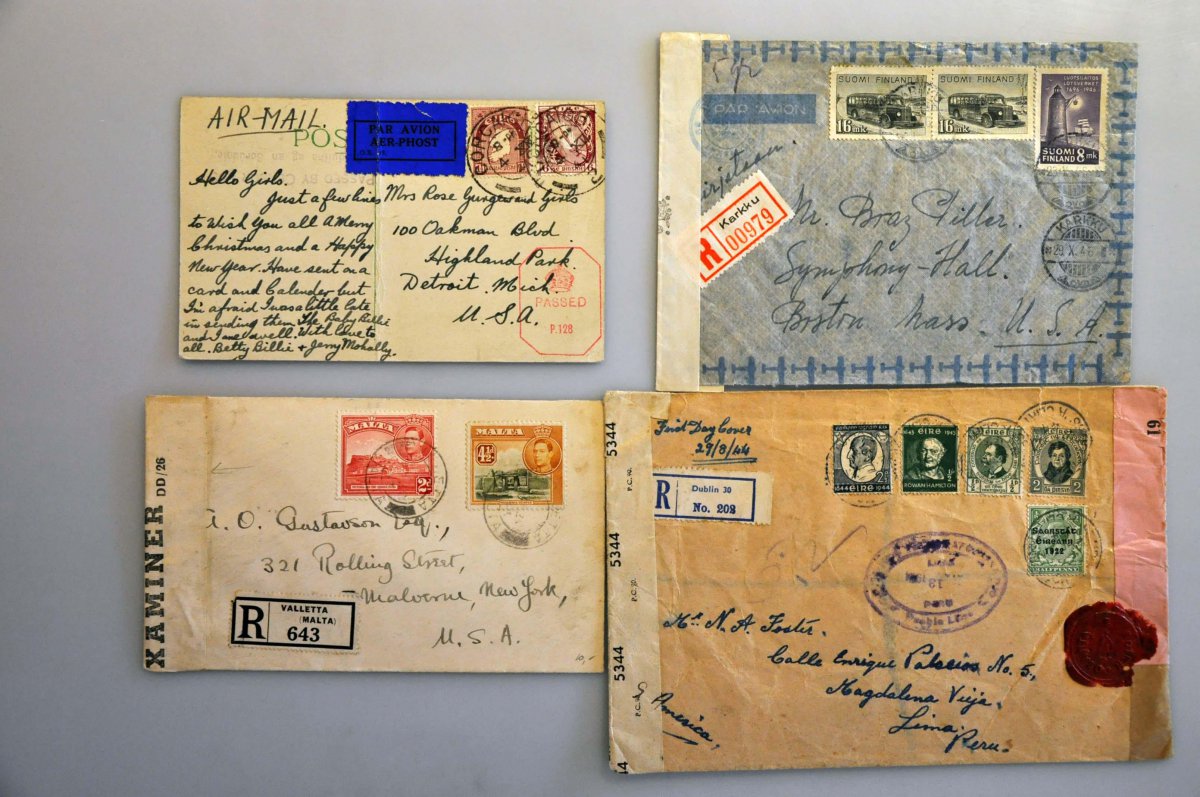 AIR-MAIL.
POS
PAR AVION
AER-PHOST
Hello Girls.
Just a few lines
to Wish you all a Merry
Christmas and a Happy
New Year. Have sent on a
card and Calender but
I'm afraid I was a little late
in sending them The Baby Billie
and I are well. With love to
all. Betty Billie + Jerry
Mrs Rose and Girls
100 Oakman Blvd
Highland Park.
Detroit. Mich.
U.S.A.
PASSED
P.128
PAR AVION
SUOMI FINLAND
16 mk
SUOMI FINLAND
16 mk
LUOTSILAITOS
LOTSVERKET
1696-1946
SUOMI
FINLAND 8 mk
KARKKU
R Karkku
00979
Mr.
Symphony-Hall.
Boston Mass. U.S.A.
XAMINER DD/26
MALTA
2d
MALTA
4½d
A. O. Gustavson Esq.,
321 Rolling Street,
Malverne, New York,
U.S.A.
R VALLETTA
(MALTA)
643
10,-
5344
P.C. 90.
5344
P.C. 90.
5344
P.C. 90.
44
19
First Day Cover
29/8/44
R Dublin 30
No. 208
1844 ÉIRE 1944
1843 ÉIRE 1943
ROWAN HAMILTON
ÉIRE
2
Saorstát
Éireann
1922
HALFPENNY
Mr. N. A. Foster.
Calle Enrique Palacios No. 5,
Magdalena Vieja.
Lima.
Peru.
S. America,